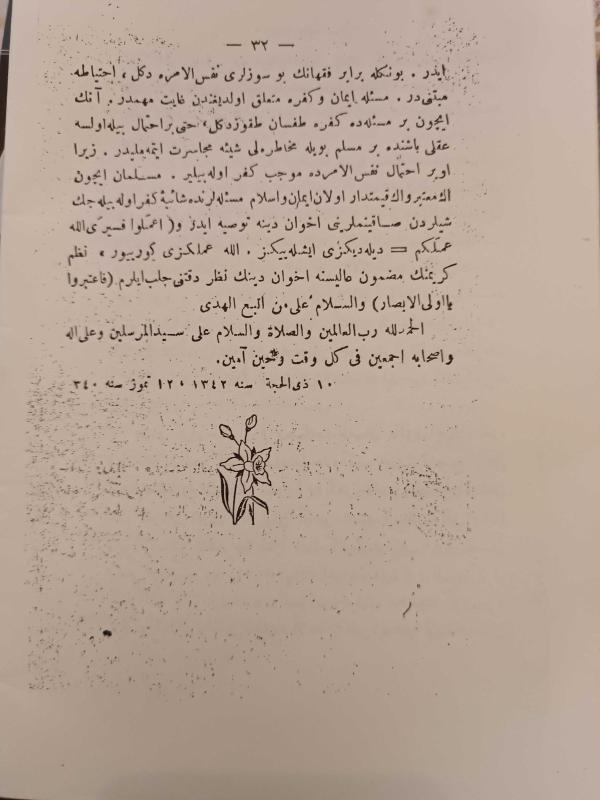 — ٣٢ —
ايدر . بونكله برابر فقهانك بو سوزلرى نفس الامرده دكل ، احتياطه
مبتنى در . مسئله ايمان وكفره متعلق اولديغندن غايت مهمدر . آنك
ايچون بر مسئله ده كفره طقسان طقوز دكل، حتى بر احتمال بيله اولسه
عقلى باشنده بر مسلم بويله مخاطره لى شيئه مجاسرت ايتمه مليدر . زيرا
او بر احتمال نفس الامرده موجب كفر اوله بيلير . مسلمان ايچون
اك معتبر واك قيمتدار اولان ايمان واسلام مسئله لرنده شائبۀ كفر اوله بيله جك
شيلردن صاقينملرينى اخوان دينه توصيه ايدر و( اعملوا فسيرى الله
عملكم = ديله ديكزى ايشله ييكز . الله عملكزى كوريبور ، نظم
كريمنك مضمون عاليسنه اخوان دينك نظر دقتنى جلب ايلرم (فاعتبروا
يا اولى الابصار) والسلام على من اتبع الهدى
الحمد لله رب العالمين والصلاة والسلام على سيد المرسلين وعلى اله
واصحابه اجمعين فى كل وقت وحين آمين.
١٠ ذى الحجة سنه ١٣٤٢ ، ١٢ تموز سنه ٣٤٠